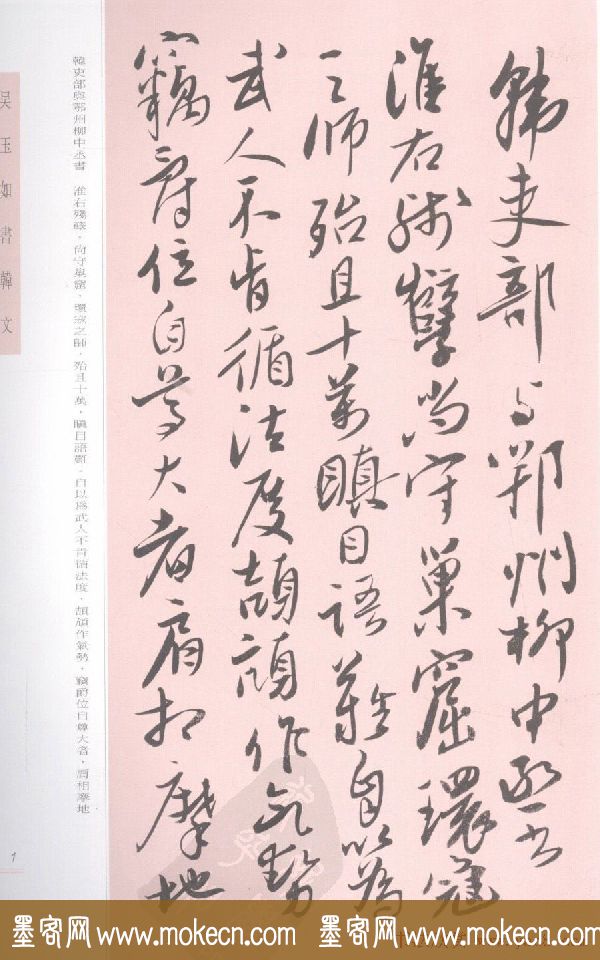 韓吏部与鄂州柳中丞书
淮右残孽尚守巢窟環寇
之师殆且十萬瞋目语難自以為
武人不肯循法度頡頏作氣勢
竊爵位自尊大者肩相摩地
韓吏部與鄂州柳中丞書 淮右殘孽，尚守巢窟，環寇之師，殆且十萬，瞋目語難，自以為武人不肯循法度，頡頏作氣勢，竊爵位自尊大者，肩相摩地
吴玉如書韓文
1
墨客网 www.mokecn.com 墨客网 www.mokecn.com